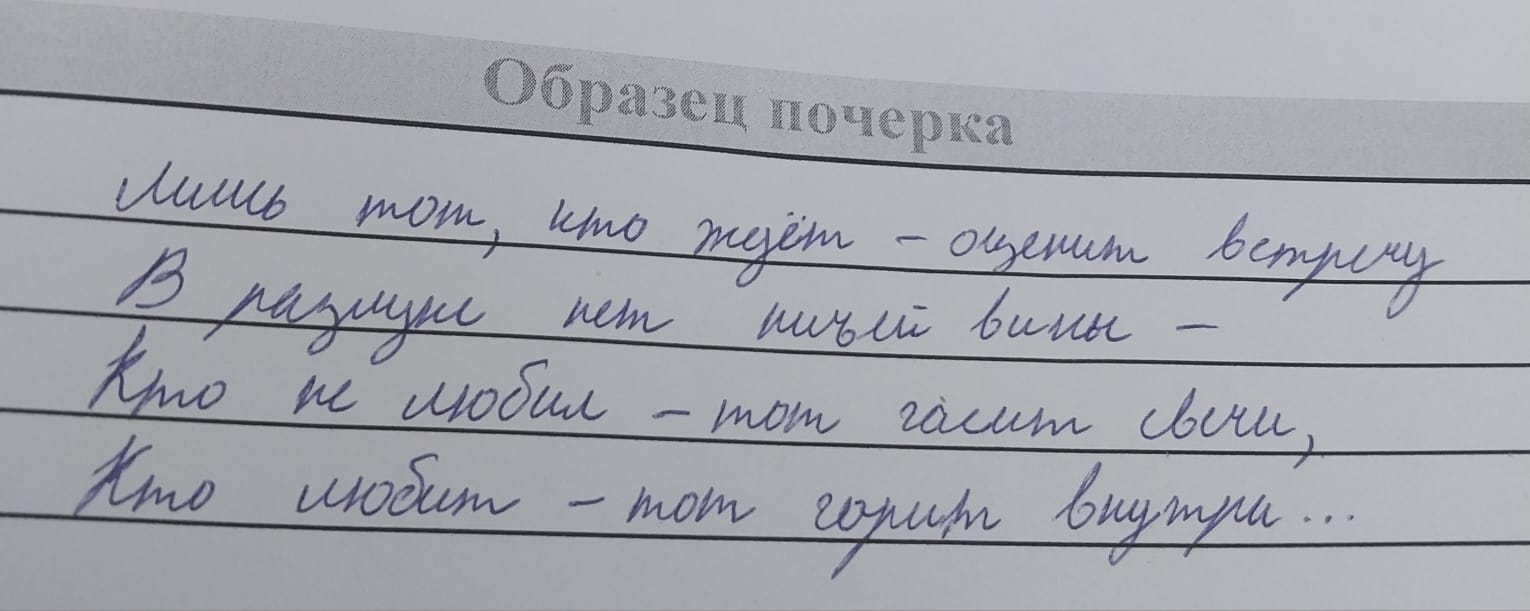 Образец почерка
Лишь тот, кто ждёт - оценит встречу
В разлуке нет ничьей вины -
Кто не любил - тот гасит свечи,
Кто любит - тот горит внутри...